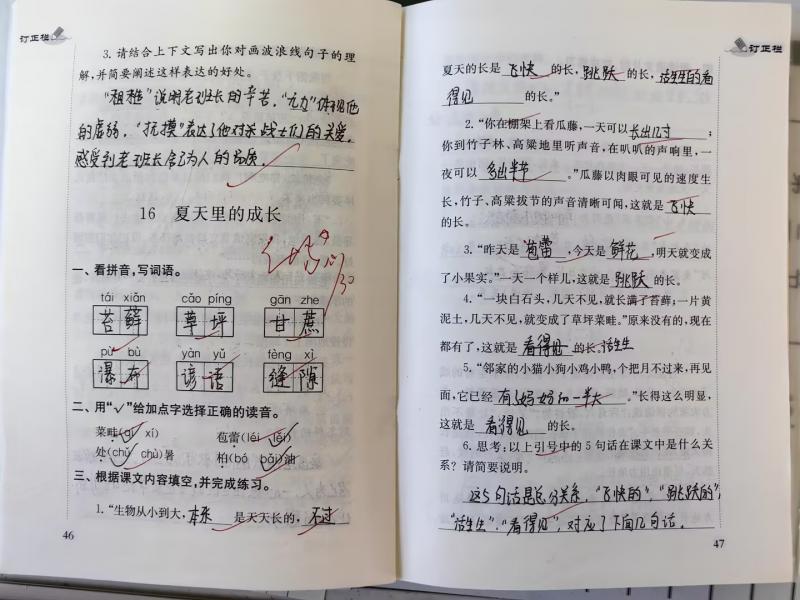 订正栏
3. 请结合上下文写出你对画波浪线句子的理
解,并简要阐述这样表达的好处。
"粗糙"说明老班长的辛苦,"无力"体现他
的虚弱,"抚摸"表达了他对红战士们的关爱,
感受到老班长舍己为人的品质。
16 夏天里的成长
10/30
一、看拼音,写词语。
tái xiǎn cǎo píng gān zhe
苔藓 草坪 甘蔗
pù bù yàn yǔ fèng xì
瀑布 谚语 缝隙
二、用"✓"给加点字选择正确的读音。
菜畦(qí xí) 苞蕾(léi lěi)
处(chǔ chù)暑 柏(bó bǎi)油
三、根据课文内容填空,并完成练习。
1. "生物从小到大,本来是天天长的,不过
46
订正栏
夏天的长是飞快的长,跳跃的长,活生生的看
得见的长。"
2. "你在棚架上看瓜藤,一天可以长出几寸;
你到竹子林、高粱地里听声音,在叭叭的声响里,一
夜可以多出半节。"瓜藤以肉眼可见的速度生
长,竹子、高粱拔节的声音清晰可闻,这就是飞快
的长。
3. "昨天是苞蕾,今天是鲜花,明天就变成
了小果实。"一天一个样儿,这就是跳跃的长。
4. "一块白石头,几天不见,就长满了苔藓;一片黄
泥土,几天不见,就变成了草坪菜畦。"原来没有的,现在
都有了,这就是看得见的长。活生生
5. "邻家的小猫小狗小鸡小鸭,个把月不过来,再见
面,它已经有了妈妈的一半大。"长得这么明显,
这就是看得见的长。
6. 思考:以上引号中的5句话在课文中是什么关
系?请简要说明。
这5句话是总分关系,"飞快的","跳跃的",
"活生生","看得见",对应了下面几句话。
47